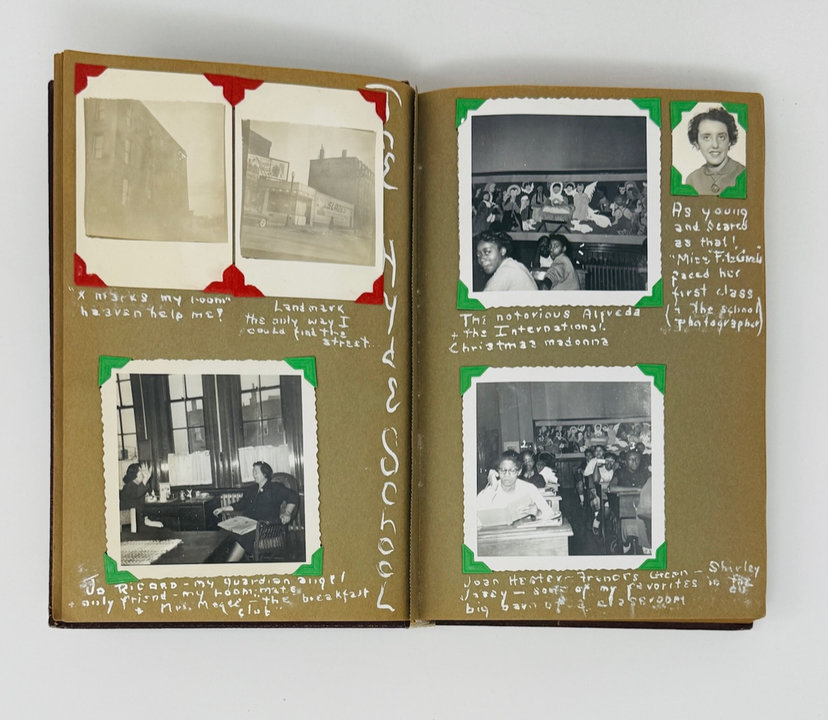 "X marks my room"
heaven help me!
Landmark
the only way I
could find the
street.
Jo Ricard - my guardian angel
+ only friend - my roommate
+ Mrs. Magee - the breakfast
club
SCHOOL
The notorious Alfreda
+ the International
Christmas madonna
As young
and scared
as that!
"Miss Fitz
faced her
first class
(+ the school
photographer)
Joan Hester - Frances Green - Shirley
- some of my favorites in the
big barn of a classroom